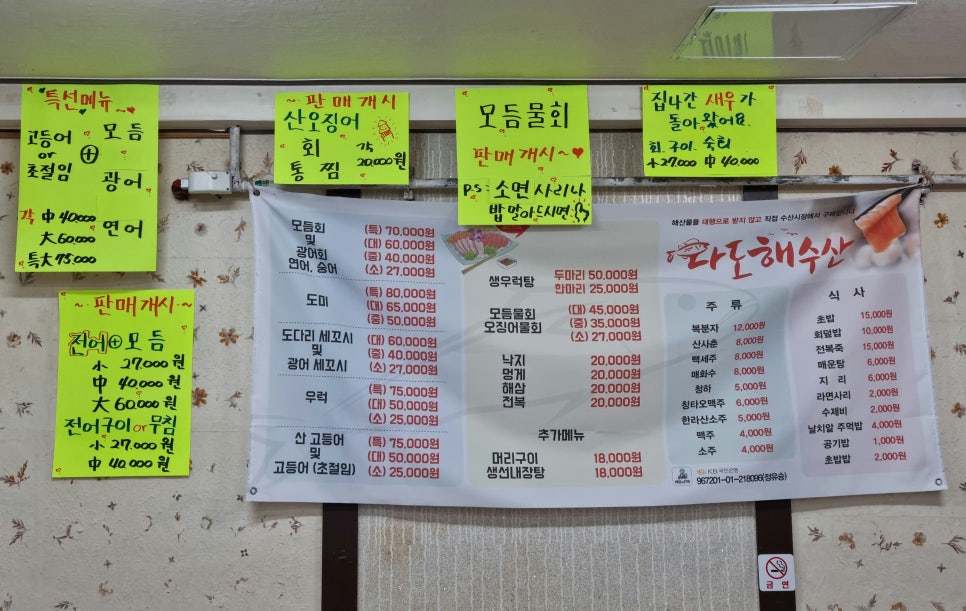 특선메뉴
고등어 or 초절임 ⊕ 모듬 광어 연어
각 中 40.000
大 60.000
특大 75.000
~판매개시
산오징어
회 통찜 각 20.000원
모듬물회
판매개시~
PS: 소면 사리나
밥 말아드시면
집나간 새우가
돌아왔어요
회. 구이. 숙티
小 27.000 中 40.000
~판매개시~
전어⊕모듬
小 27.000원
中 40.000원
大 60.000원
전어구이or무침
小 27.000원
中 40.000원
해산물을 대행으로 받지 않고 직접 수산시장에서 구매합니다
다도해수산
모듬회 및 광어회 연어, 숭어
(특) 70,000원
(대) 60,000원
(중) 40,000원
(소) 27,000원
도미
(특) 80,000원
(대) 65,000원
(중) 50,000원
도다리 세꼬시 및 광어 세꼬시
(대) 60,000원
(중) 40,000원
(소) 27,000원
우럭
(특) 75,000원
(대) 50,000원
(소) 25,000원
산 고등어 및 고등어 (초절임)
(특) 75,000원
(대) 50,000원
(소) 25,000원
생우럭탕
두마리 50,000원
한마리 25,000원
모듬물회 오징어물회
(대) 45,000원
(중) 35,000원
(소) 27,000원
낙지 20,000원
멍게 20,000원
해삼 20,000원
전복 20,000원
추가메뉴
머리구이 18,000원
생선내장탕 18,000원
주 류
복분자 12,000원
산사춘 8,000원
백세주 8,000원
매화수 8,000원
청하 5,000원
칭타오맥주 6,000원
한라산소주 5,000원
맥주 4,000원
소주 4,000원
KB 국민은행
967201-01-218096(정유승)
식 사
초밥 15,000원
회덮밥 10,000원
전복죽 15,000원
매운탕 6,000원
지 리 6,000원
라면사리 2,000원
수제비 2,000원
날치알 주먹밥 4,000원
공기밥 1,000원
초밥밥 2,000원
금연